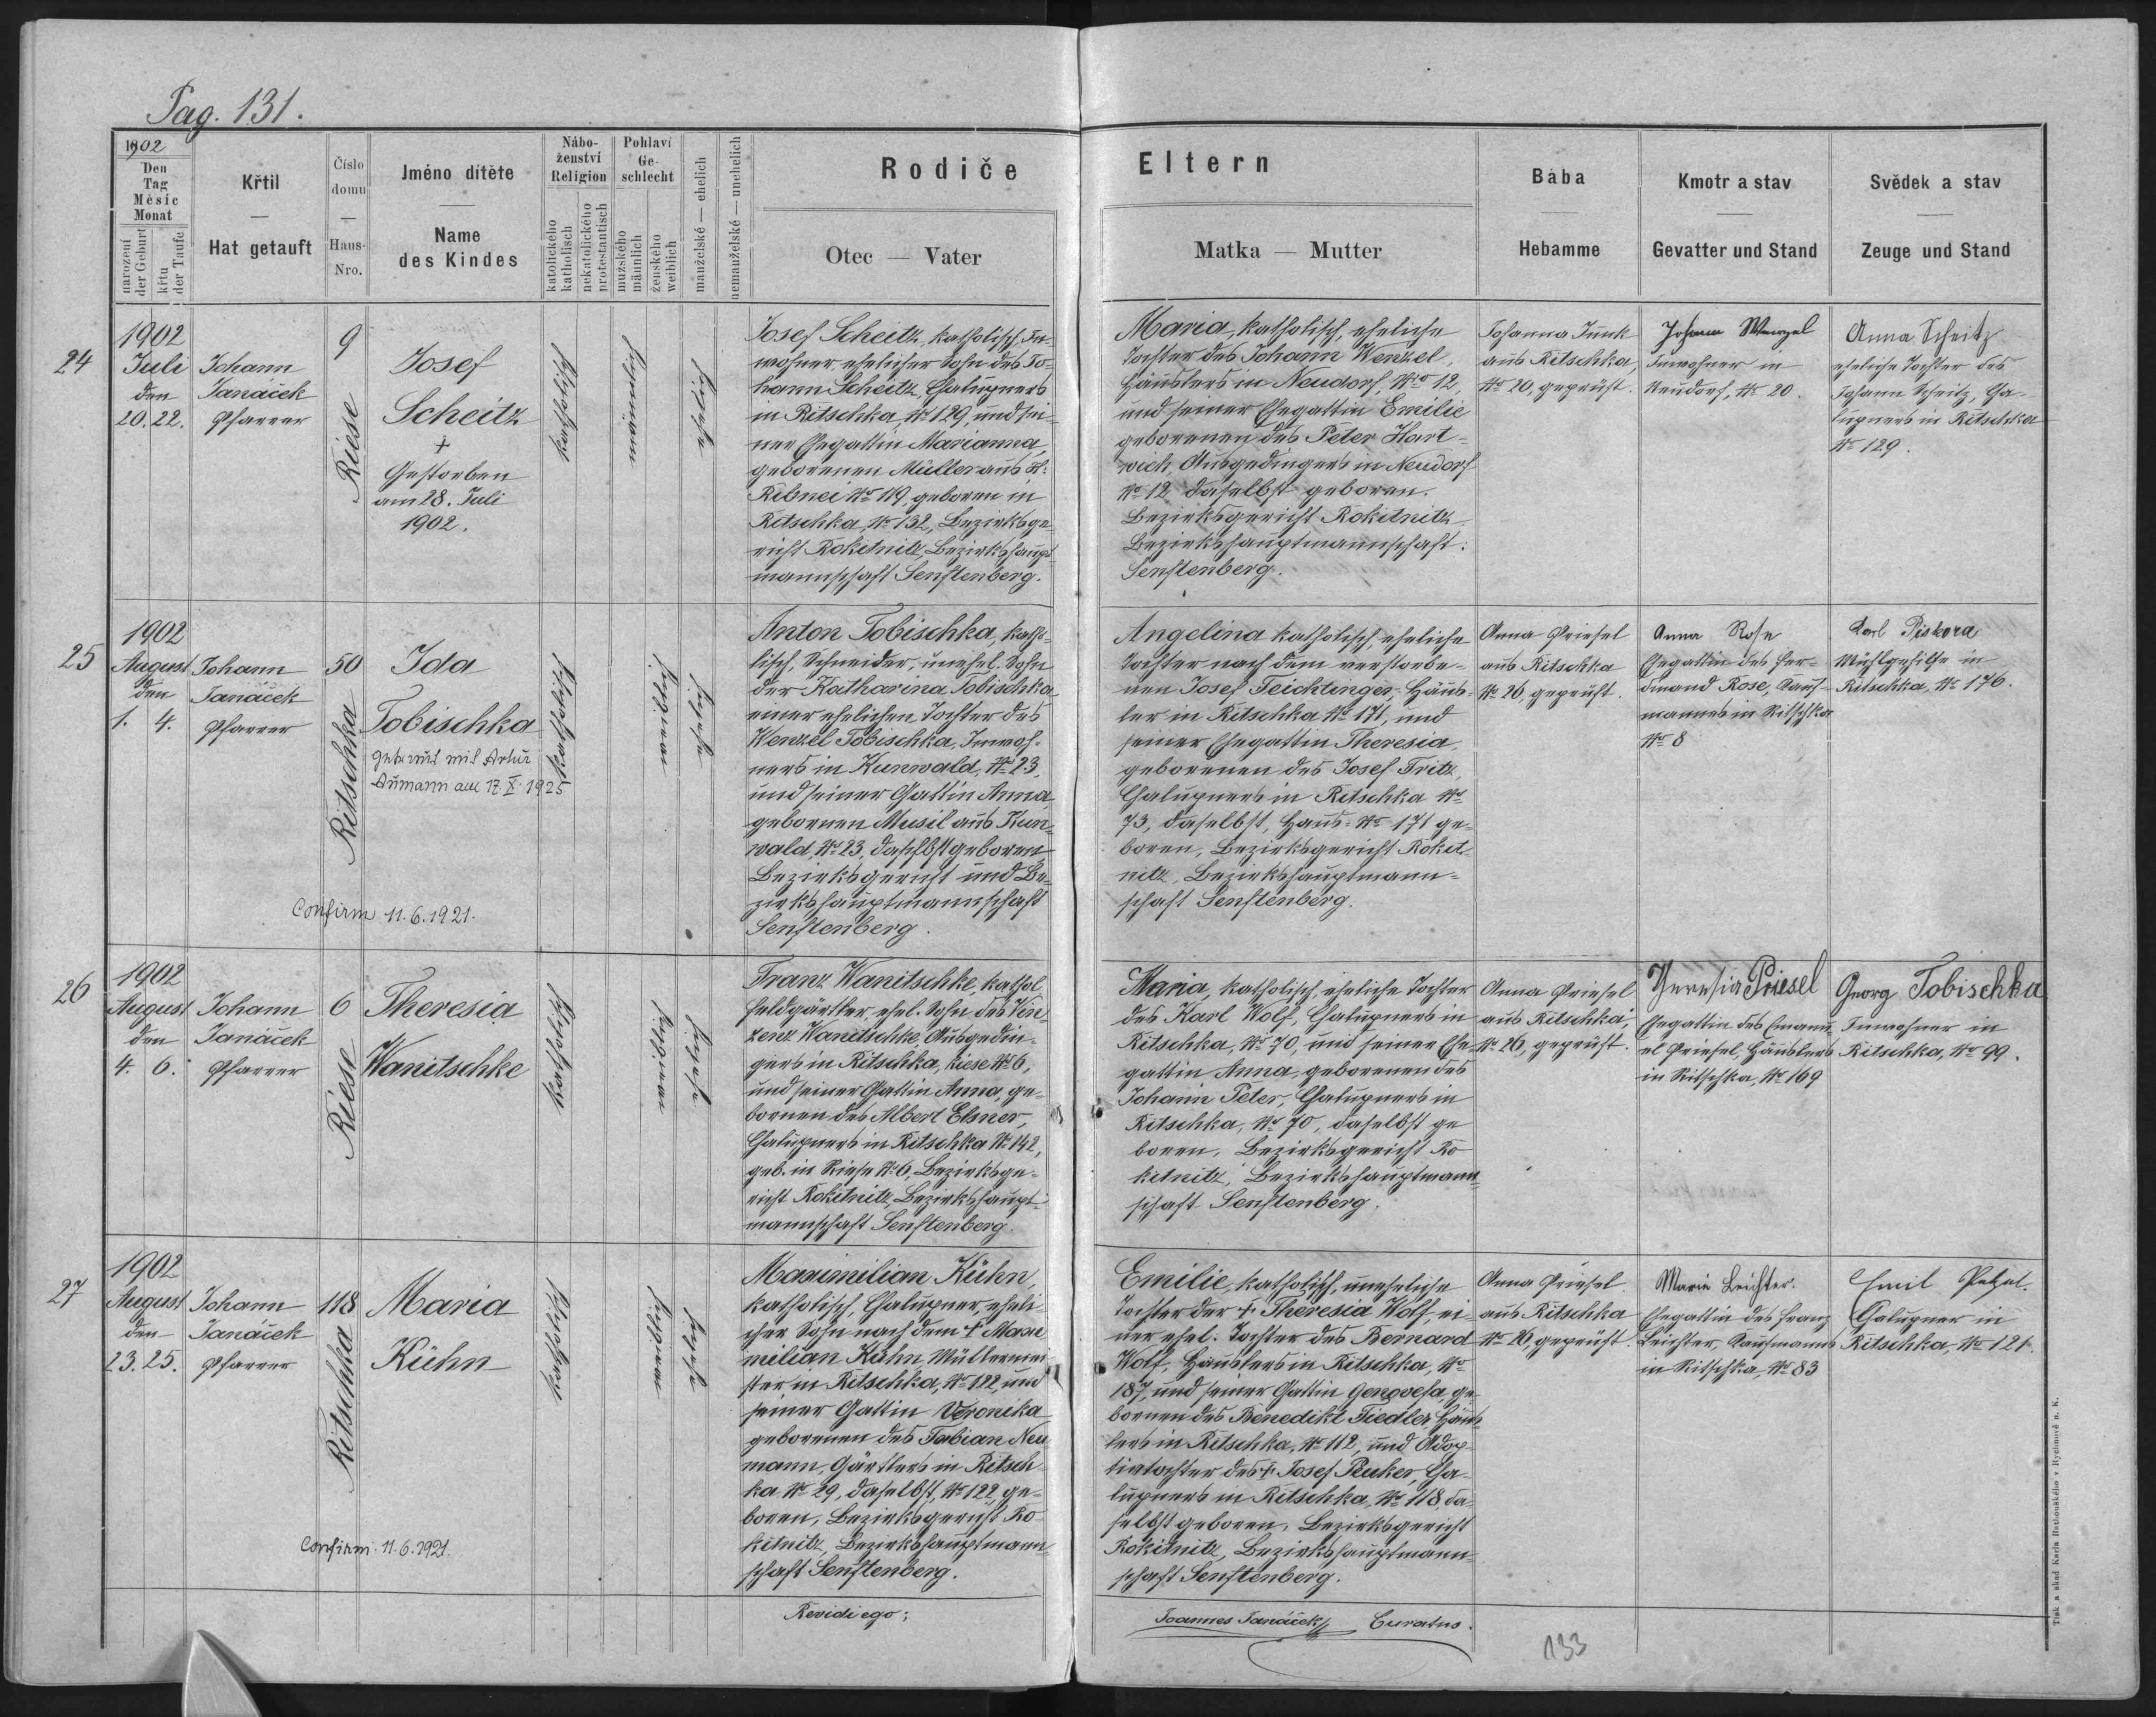 Pag. 131.
1902
Den
Tag
Měsíc
Monat
narození
der Geburt
křtu
der Taufe
Křtil
Hat getauft
Číslo
domu
Haus-
Nro.
Jméno dítěte
Name
des Kindes
Nábo-
ženství
Religion
katolického
katholisch
nekatolického
protestantisch
Pohlaví
Ge-
schlecht
mužského
männlich
ženského
weiblich
manželské — ehelich
nemanželské — unehelich
Rodiče
Otec — Vater
Eltern
Matka — Mutter
Bába
Hebamme
Kmotr a stav
Gevatter und Stand
Svědek a stav
Zeuge und Stand
24
1902
Juli
den
20. 22.
Johann
Janáček
Pfarrer
9
Riese
Josef
Scheitz
†
Gestorben
am 28. Juli
1902.
katholisch
männlich
ehelich
Josef Scheitz, katholisch, In-
wohner, ehelicher Sohn des Jo-
hann Scheitz, Chalupners
in Ritschka, No 129, und sei-
ner Ehegattin Marianna,
geborenen Müller aus H:
Ribnei No 119, geboren in
Ritschka, No 132, Bezirksge-
richt Rokitnitz, Bezirkshaupt-
mannschaft Senftenberg.
Maria, katholisch, eheliche
Tochter des Johann Wenzel,
Häuslers in Neudorf, No 12,
und seiner Ehegattin Emilie
geborenen des Peter Hart-
wich, Ausgedingers in Neudorf
No 12 daselbst geboren.
Bezirksgericht Rokitnitz
Bezirkshauptmannschaft:
Senftenberg.
Johanna Junk
aus Ritschka,
No 20, geprüft.
Johann Wenzel
Inwohner in
Neudorf, No 20.
Anna Scheitz
eheliche Tochter des
Johann Scheitz, Cha-
lupners in Ritschka
No 129.
25
1902
August
den
1. 4.
Johann
Janáček
Pfarrer
50
Ritschka
Ida
Tobischka
getraut mit Artur
Aumann am 17. X. 1925
Confirm 11. 6. 1921.
katholisch
weiblich
ehelich
Anton Tobischka, katho-
lisch, Schneider, unehel. Sohn
der Katharina Tobischka
einer ehelichen Tochter des
Wenzel Tobischka, Inwoh-
ners in Kunwald, No 23,
und seiner Gattin Anna,
gebornen Musil aus Kun-
wald, No 23, daselbst geboren
Bezirksgericht und Be-
zirkshauptmannschaft
Senftenberg.
Angelina katholisch, eheliche
Tochter nach dem verstorbe-
nen Josef Teichtinger, Häus-
ler in Ritschka No 171, und
seiner Ehegattin Theresia,
geborenen des Josef Fritz,
Chalupners in Ritschka No
73, daselbst, Haus-No 171 ge-
boren, Bezirksgericht Rokit-
nitz, Bezirkshauptmann-
schaft Senftenberg.
Anna Priesel
aus Ritschka
No 26, geprüft.
Anna Rose
Ehegattin des Fer-
dinand Rose, Kauf-
mannes in Ritschka
No 8
Karl Piskora
Mühlgehilfe in
Ritschka, No 176.
26
1902
August
den
4. 6.
Johann
Janáček
Pfarrer
6
Riese
Theresia
Wanitschke
katholisch
weiblich
ehelich
Franz Wanitschke, kathol.
Feldgärtler, ehel. Sohn des Vin-
zenz Wanitschke, Ausgedin-
gers in Ritschka, Riese No 6,
und seiner Gattin Anna, ge-
bornen des Albert Elsner,
Chalupners in Ritschka No 142,
geb. in Riese No 6, Bezirksge-
richt Rokitnitz, Bezirkshaupt-
mannschaft Senftenberg.
Maria, katholisch, eheliche Tochter
des Karl Wolf, Chalupners in
Ritschka, No 70, und seiner Ehe-
gattin Anna, geborenen des
Johann Peter, Chalupners in
Ritschka, No 70, daselbst ge
boren, Bezirksgericht Ro
kitnitz, Bezirkshauptmann-
schaft Senftenberg.
Anna Priesel
aus Ritschka,
No 26, geprüft.
Theresia Priesel
Ehegattin des Emanu-
el Priesel, Häuslers
in Ritschka, No 169
Georg Tobischka
Inwohner in
Ritschka, No 99.
27
1902
August
den
23. 25.
Johann
Janáček
Pfarrer
118
Ritschka
Maria
Kühn
Confirm. 11. 6. 1921.
katholisch
weiblich
ehelich
Maximilian Kühn,
katholisch, Chalupner, eheli-
cher Sohn nach dem † Maxi
milian Kühn Müllermei
ster in Ritschka, No 122, und
seiner Gattin Veronika
geborenen des Fabian Neu
mann, Gärtlers in Ritsch-
ka No 29, daselbst, No 122 ge-
boren, Bezirksgericht Ro
kitnitz, Bezirkshauptmann-
schaft Senftenberg.
Emilie, katholisch, uneheliche
Tochter der † Theresia Wolf, ei-
ner ehel. Tochter des Bernard
Wolf, Häuslers in Ritschka, No
187, und seiner Gattin Genovefa, ge-
bornen des Benedikt Fiedler, Häus-
lers in Ritschka, No 112, und Adop-
tivtochter des † Josef Peuker, Cha-
lupners in Ritschka, No 118, da-
selbst geboren, Bezirksgericht
Rokitnitz, Bezirkshauptmann-
schaft Senftenberg.
Anna Priesel
aus Ritschka
No 26, geprüft.
Marie Leichter.
Ehegattin des Franz
Leichter, Kaufmanns
in Ritschka, No 83
Emil Petzel.
Chalupner in
Ritschka, No 121.
Revidi ego:
Joannes Janáček Curatus.
133
Tisk a sklad Karla Rathouského v Rychnově n. K.